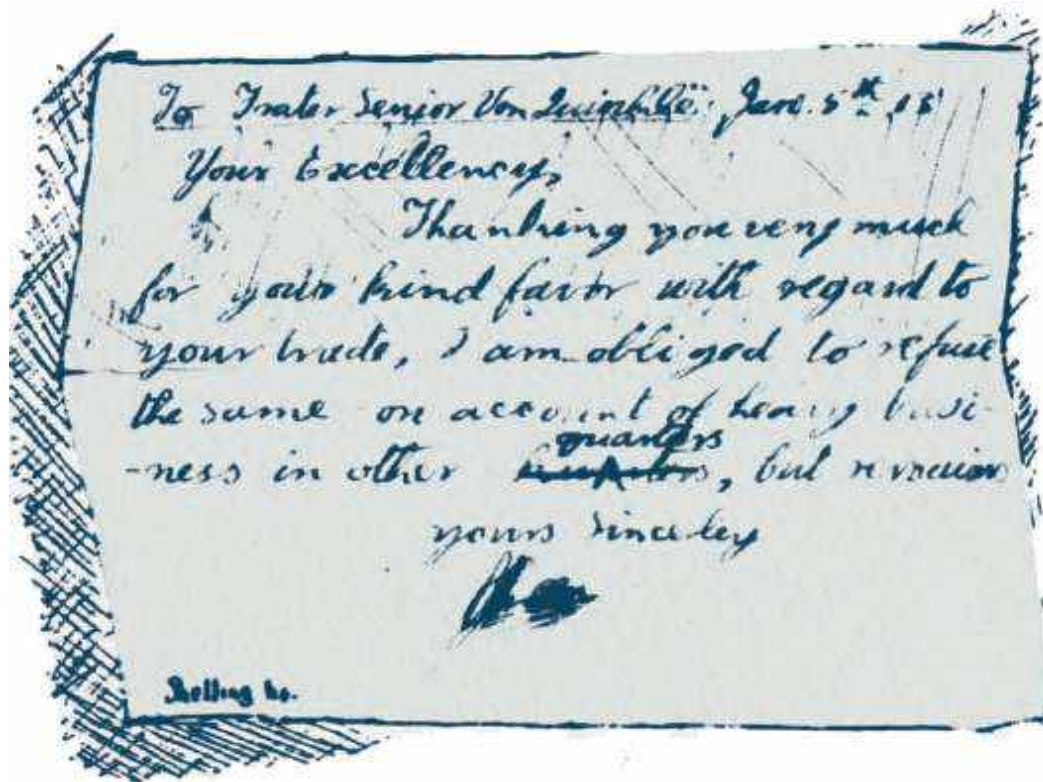 To Frater Senior Von Jane. 5th
Your Excellency,
Thanking you very much
for your kind favor with regard to
your trade, I am obliged to refuse
the same on account of heavy busi-
-ness in other quarters, but remain
yours Sinceley
Shelling ho.